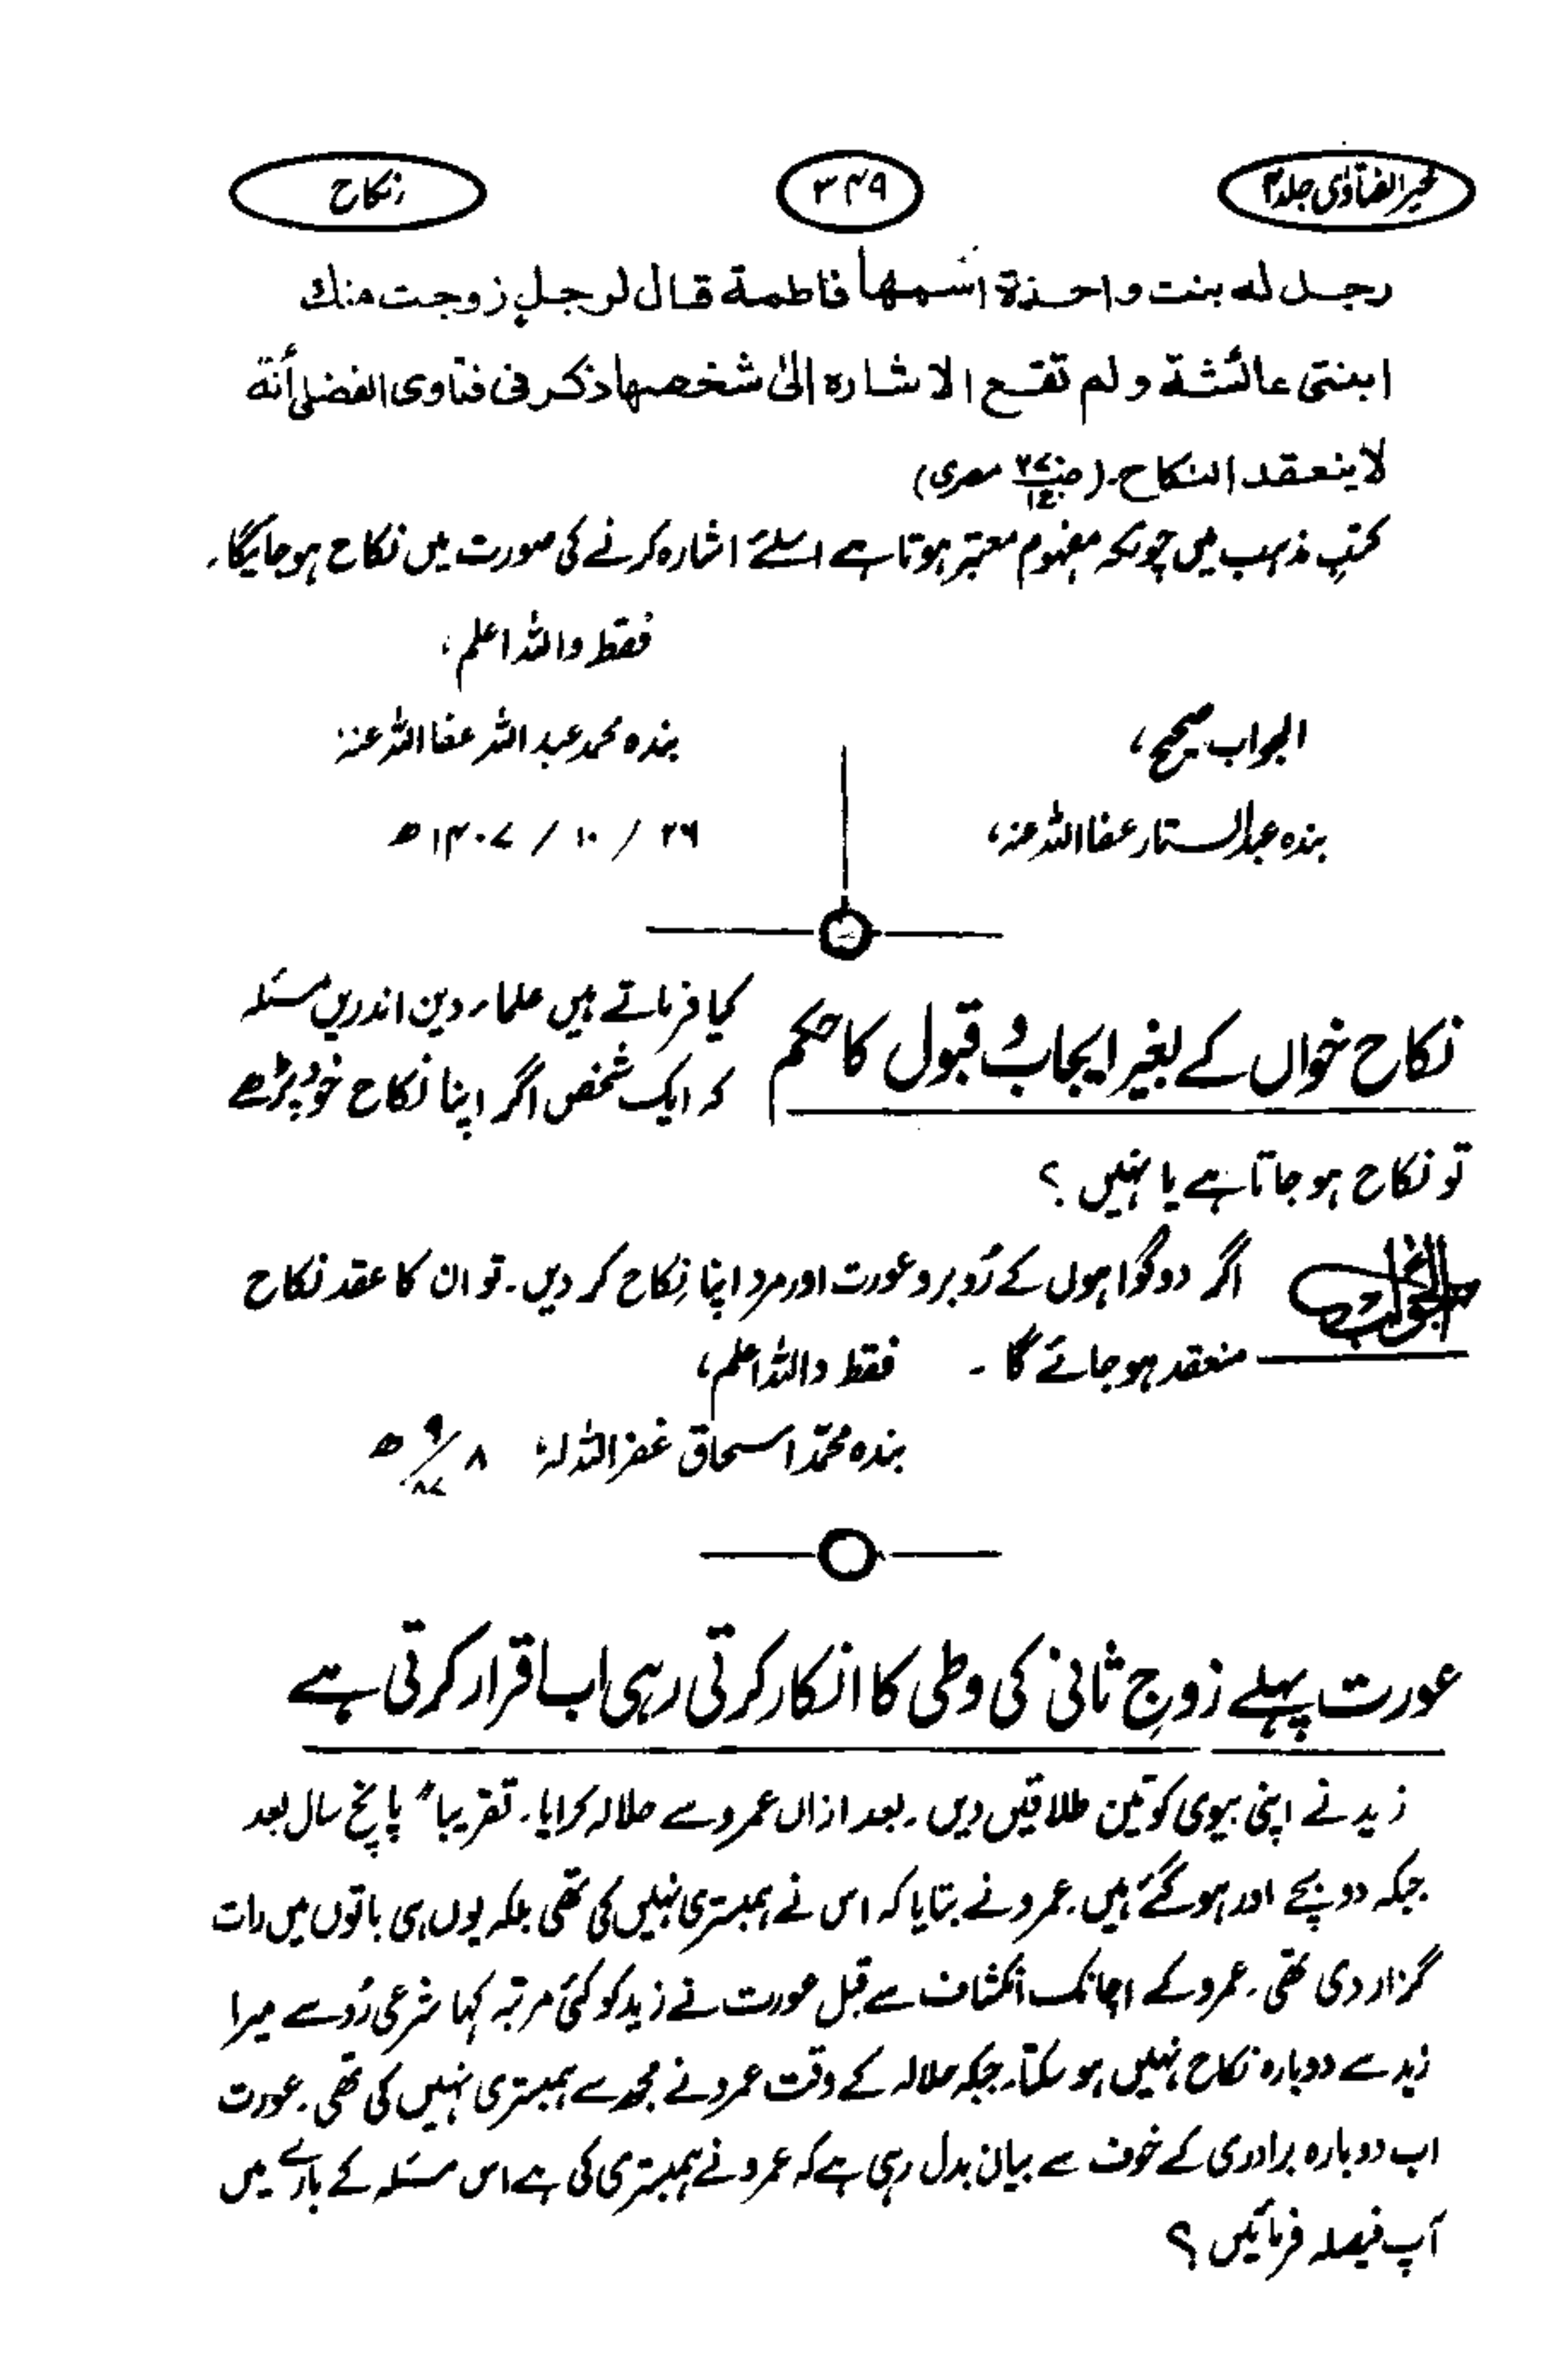 خیر الفتاوٰی جلد ۴ ۳۴۹ نکاح
رجل له بنت واحدة اسمها فاطمة قال لرجلٍ زوجت منك
ابنتی عائشة ولم تقع الاشاره الیٰ شخصها ذکر فی فتاوی الفضلی أنه
لا ینعقد النکاح۔ ( مصری)
کتبِ مذہب میں چونکہ مفہوم معتبر ہوتا ہے اسلئے اشارہ کرنے کی صورت میں نکاح ہو جائیگا۔
فقط واللہ اعلم،
الجواب صحیح، بندہ محمد عبداللہ عفا اللہ عنہٗ
بندہ عبدالستار عفا اللہ عنہ، ۲۶ / ۱۰ / ۱۴۰۷ھ
نکاح خواں کے بغیر ایجاب و قبول کا حکم
کیا فرماتے ہیں علماء دین اندریں مسئلہ
کہ ایک شخص اگر اپنا نکاح خود پڑھے
تو نکاح ہو جاتا ہے یا نہیں ؟
الجواب اگر دو گواہوں کے رُوبرو عورت اور مرد اپنا نِکاح کر دیں۔ تو ان کا عقد نکاح
منعقد ہو جائے گا ۔ فقط واللہ اعلم،
بندہ محمّد اسحاق غفر اللہ لہٗ ۸/۹/۸۷ھ
عورت پہلے زوجِ ثانی کی وطی کا انکار کرتی رہی اب اقرار کرتی ہے
زید نے اپنی بیوی کو تین طلاقیں دیں۔ بعد ازاں عمرو سے حلالہ کرایا۔ تقریباً پانچ سال بعد
جبکہ دو بچے اور ہو گئے ہیں۔ عمرو نے بتایا کہ اس نے ہمبستری نہیں کی تھی بلکہ یوں ہی باتوں میں رات
گزار دی تھی۔ عمرو کے اچانک انکشاف سے قبل عورت نے زید کو کئی مرتبہ کہا شرعی رُو سے میرا
زید سے دوبارہ نکاح نہیں ہو سکتا۔ جبکہ حلالہ کے وقت عمرو نے مجھ سے ہمبستری نہیں کی تھی۔ عورت
اب دوبارہ برادری کے خوف سے بیان بدل رہی ہے کہ عمرو نے ہمبستری کی ہے اس مسئلہ کے بارے میں
آپ فیصلہ فرمائیں ؟